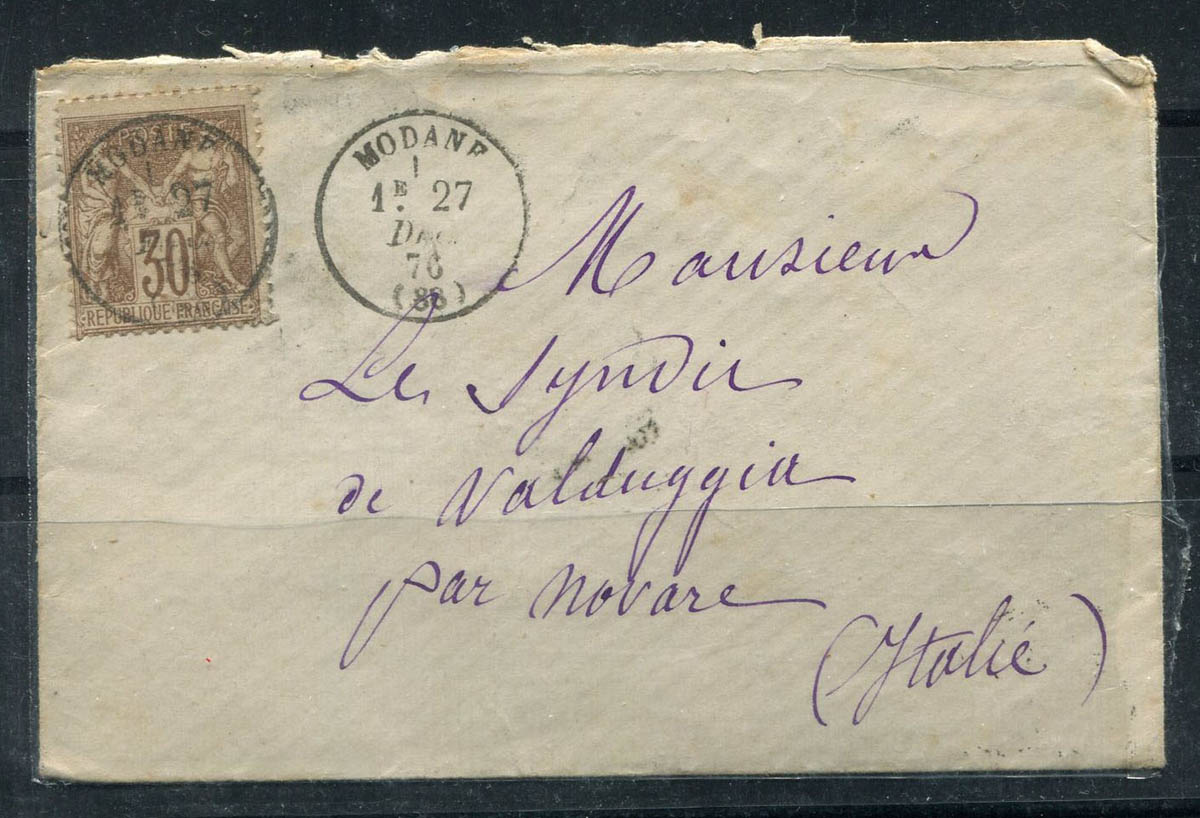 MODANE
1
1E. 27
30
REPUBLIQUE FRANÇAISE
MODANE
1
1E. 27
Déc.
76
(88)
Monsieur
Le Syndic
de Valduggia
par Novare
(Italie)